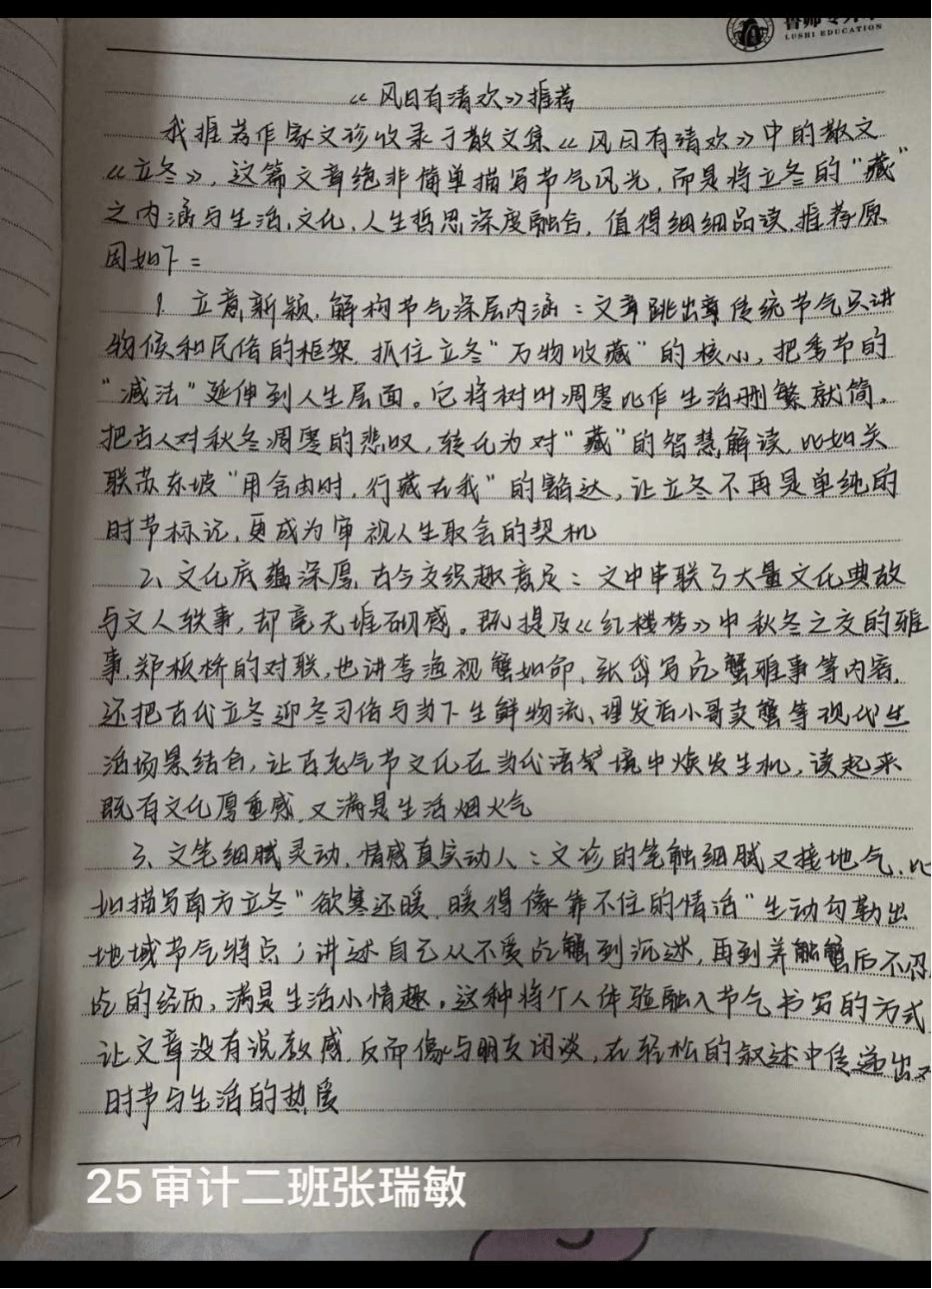 LUSHI EDUCATION
《风日有清欢》推荐
我推荐作家文珍收录于散文集《风日有清欢》中的散文
《立冬》，这篇文章绝非简单描写节气风光，而是将立冬的“藏”
之内涵与生活、文化、人生哲思深度融合，值得细细品读，推荐原
因如下：
1. 立意新颖，解构节气深层内涵：文章跳出章传统节气只讲
物候和民俗的框架，抓住立冬“万物收藏”的核心，把季节的
“减法”延伸到人生层面。它将树叶凋零比作生活删繁就简，
把古人对秋冬凋零的悲叹，转化为对“藏”的智慧解读，比如关
联苏东坡“用舍由时，行藏在我”的豁达，让立冬不再是单纯的
时节标记，更成为审视人生取舍的契机
2、文化底蕴深厚，古今交织趣意足：文中串联了大量文化典故
与文人轶事，却毫无堆砌感。既提及《红楼梦》中秋冬之交的雅
事，郑板桥的对联，也讲李渔视蟹如命，张岱写吃蟹雅事等内容，
还把古代立冬迎冬习俗与当下生鲜物流、理发店小哥卖蟹等现代生
活场景结合，让古老气节文化在当代语境中焕发生机，读起来
既有文化厚重感，又满是生活烟火气
3、文笔细腻灵动，情感真实动人：文珍的笔触细腻又接地气，比
如描写南方立冬“欲寒还暖，暖得像靠不住的情话”生动勾勒出
地域节气特点；讲述自己从不爱吃蟹到沉迷，再到养蟹后不忍
吃的经历，满是生活小情趣。这种将个人体验融入节气书写的方式
让文章没有说教感，反而像与朋友闲谈，在轻松的叙述中传递出对
时节与生活的热爱
25审计二班张瑞敏